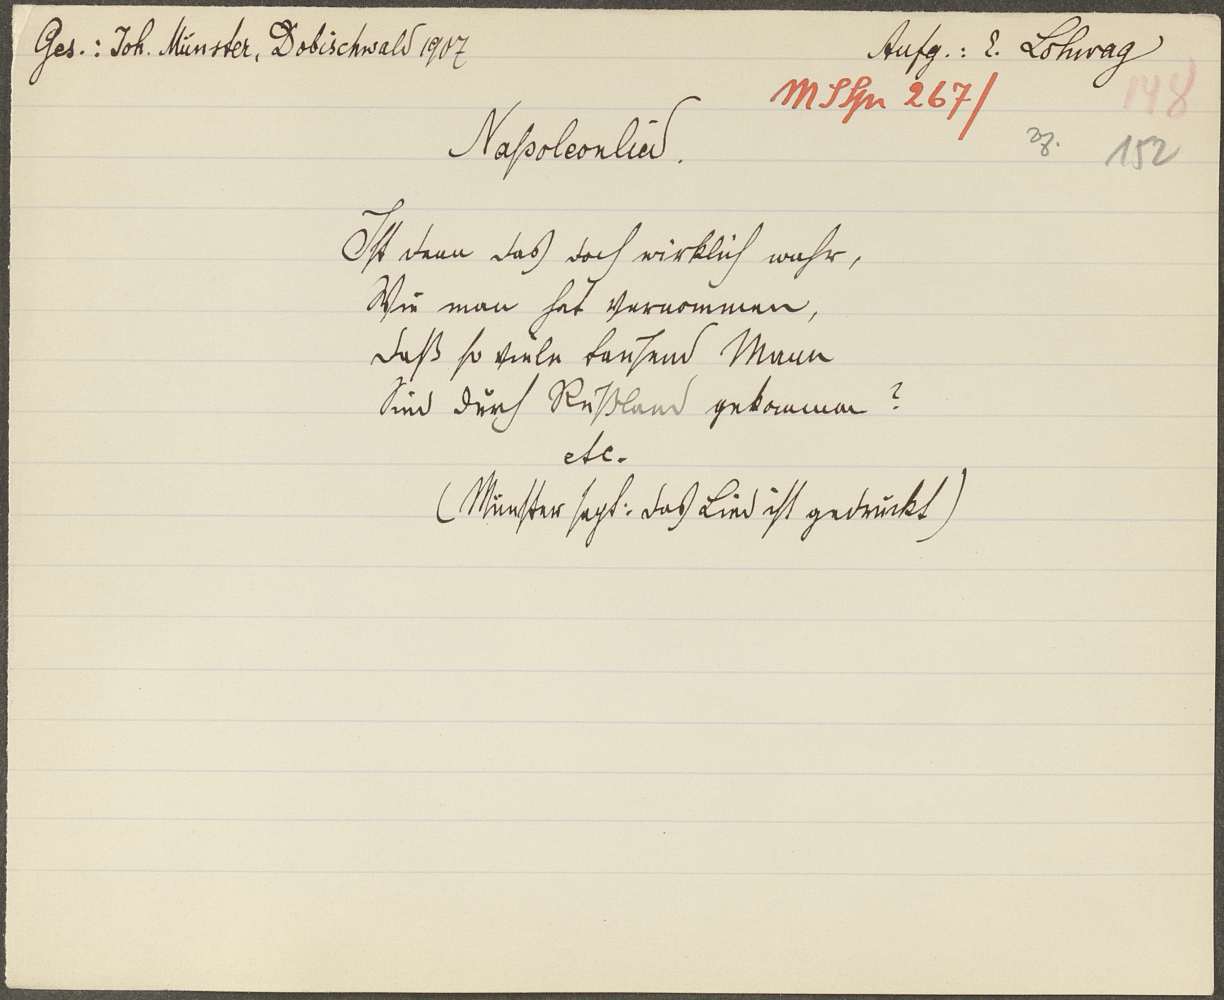 Ges.: Joh. Münster, Dobischwald 1907
Aufg.: E. Lohwag
MSlgn 267/
148
152
Napoleonlied.
Ist denn das doch wirklich wahr,
Wie man hat vernommen,
daß so viele tausend Mann
Sind durch Rußland gekommen?
etc.
(Münster sagt: das Lied ist gedruckt)